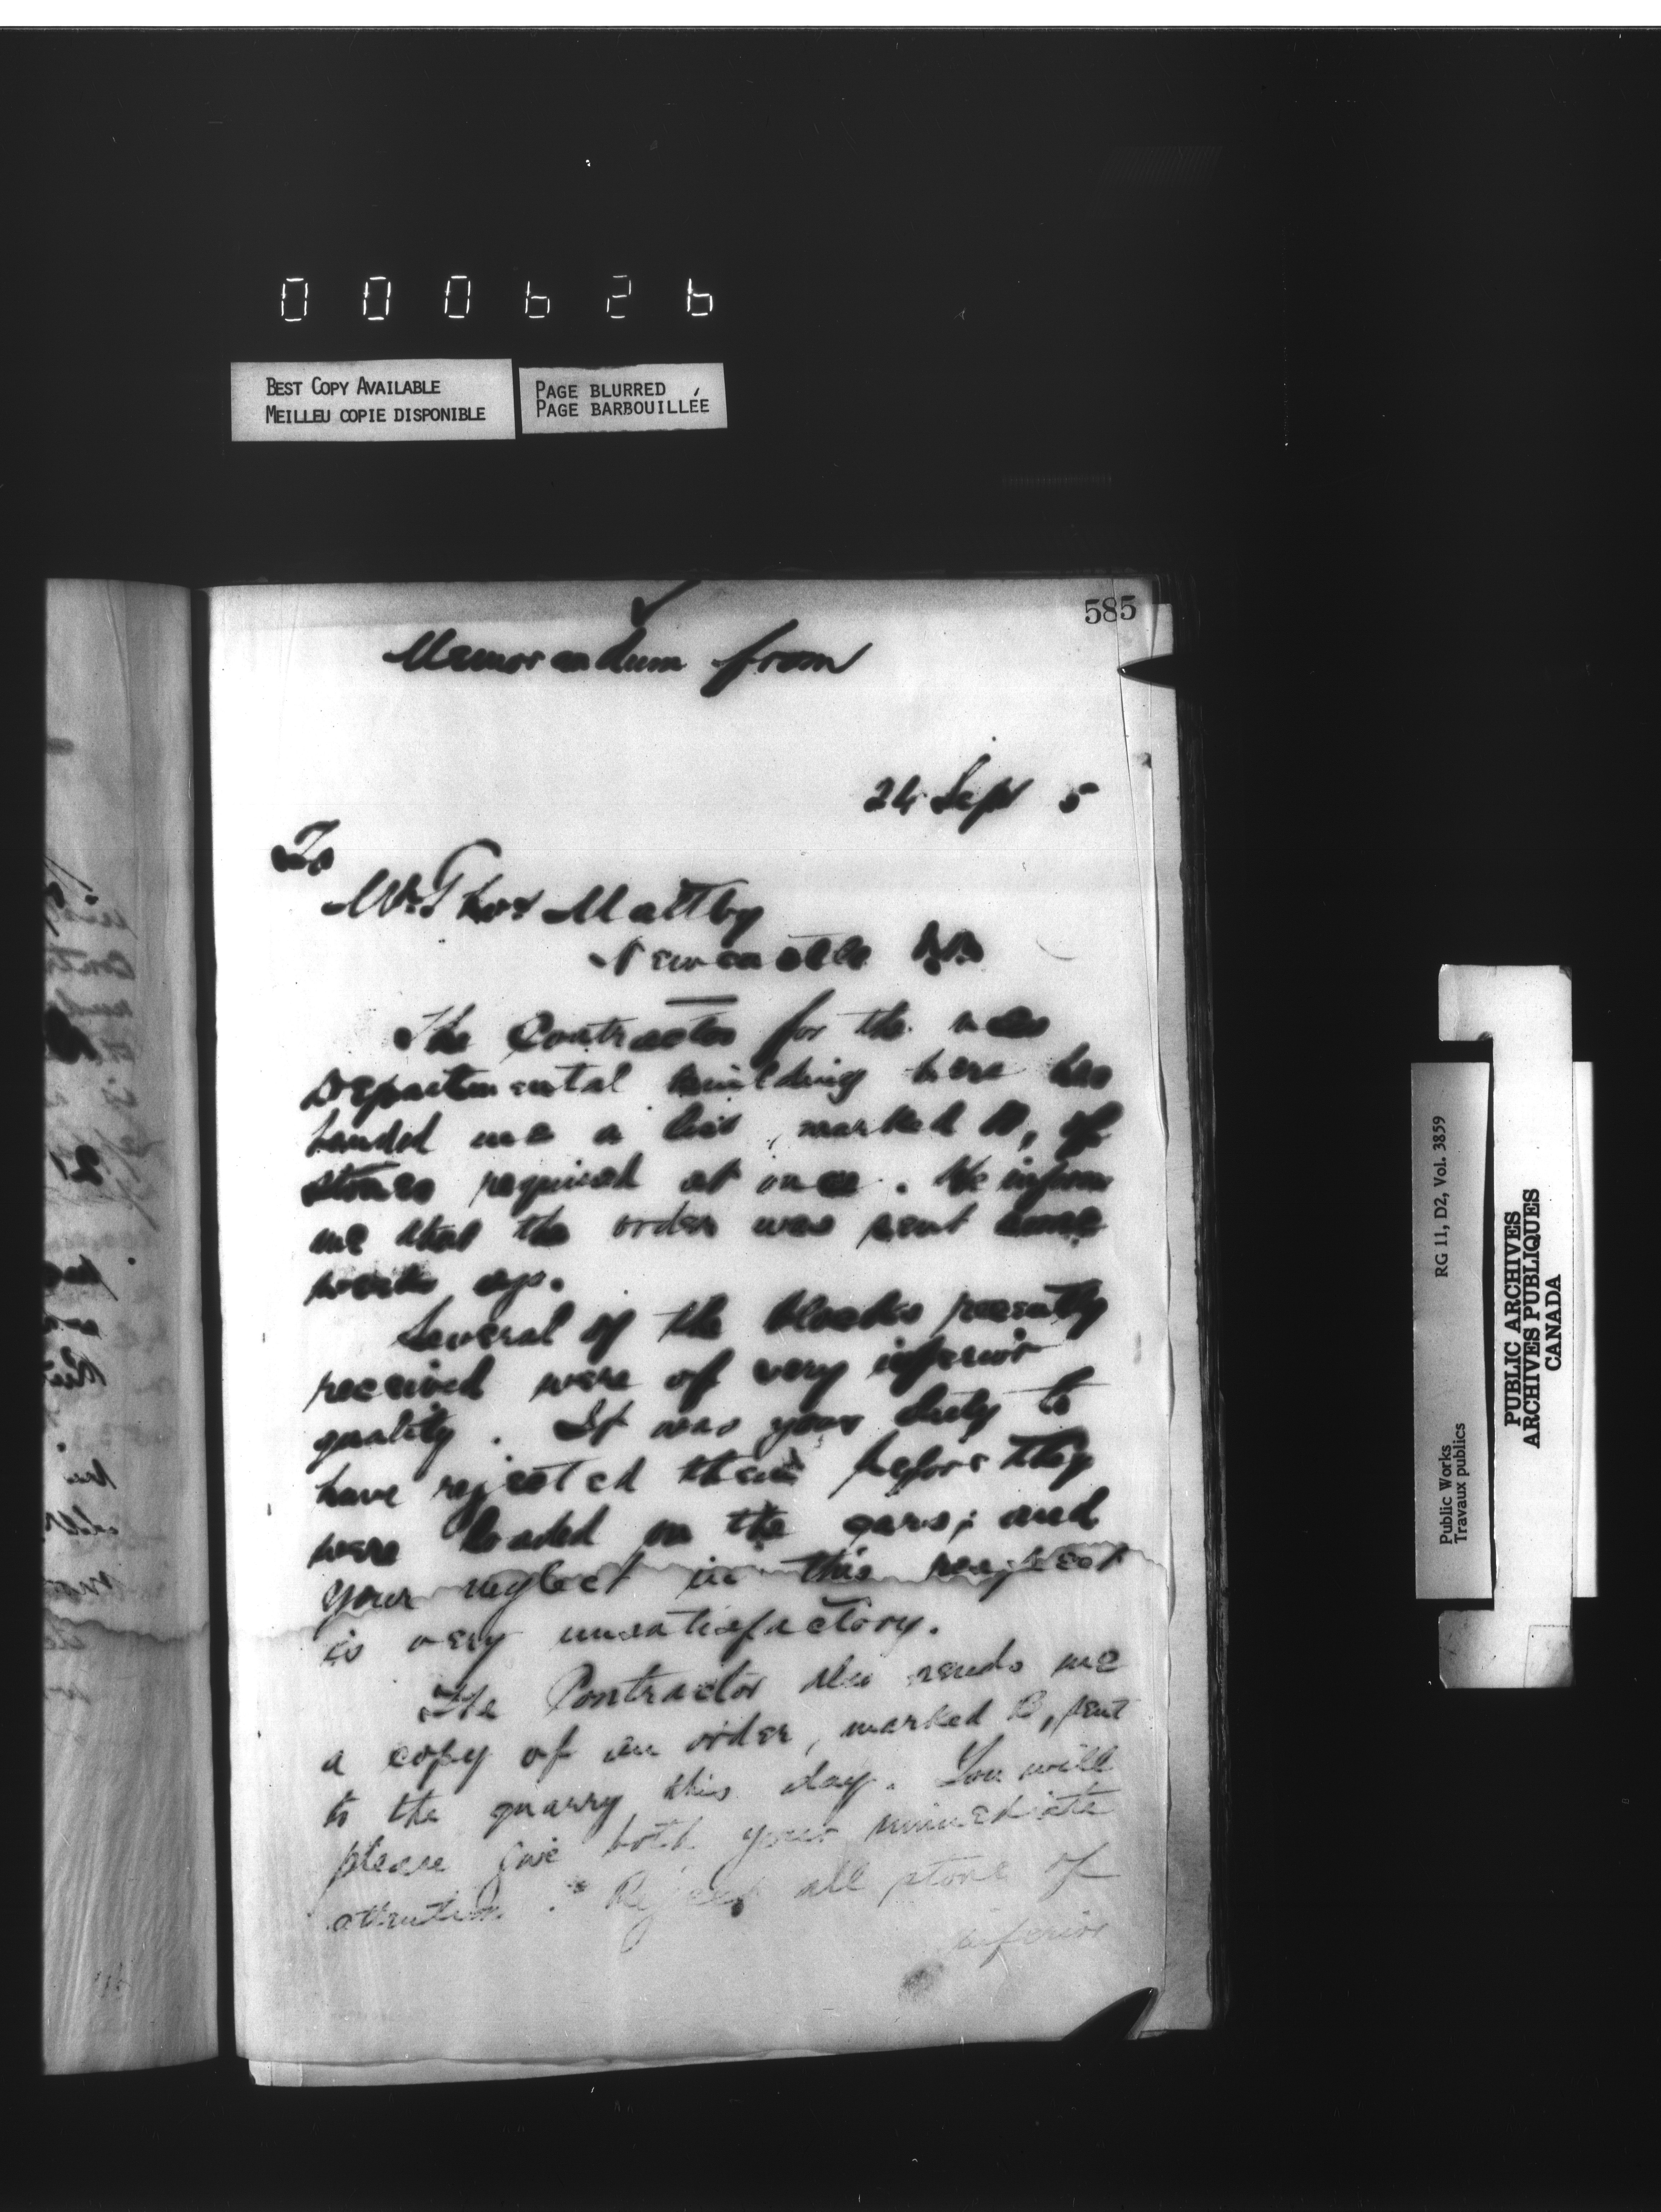 000626
BEST COPY AVAILABLE
MEILLEU COPIE DISPONIBLE
PAGE BLURRED
PAGE BARBOUILLÉE
585
Memorandum from
24 Sept 5
To
Mr Thos Maltby
Newcastle NB
The Contractor for the new
Departmental building here has
handed me a list, marked A, of
stones required at once. He informs
me that the order was sent some
weeks ago.
Several of the blocks recently
received were of very inferior
quality. It was your duty to
have rejected them before they
were loaded on the cars; and
your neglect in this respect
is very unsatisfactory.
The Contractor also sends me
a copy of an order, marked B, sent
to the quarry this day. You will
please give both your immediate
attention. Reject all stone of
inferior
Public Works
Travaux publics
RG 11, D2, Vol. 3859
PUBLIC ARCHIVES
ARCHIVES PUBLIQUES
CANADA